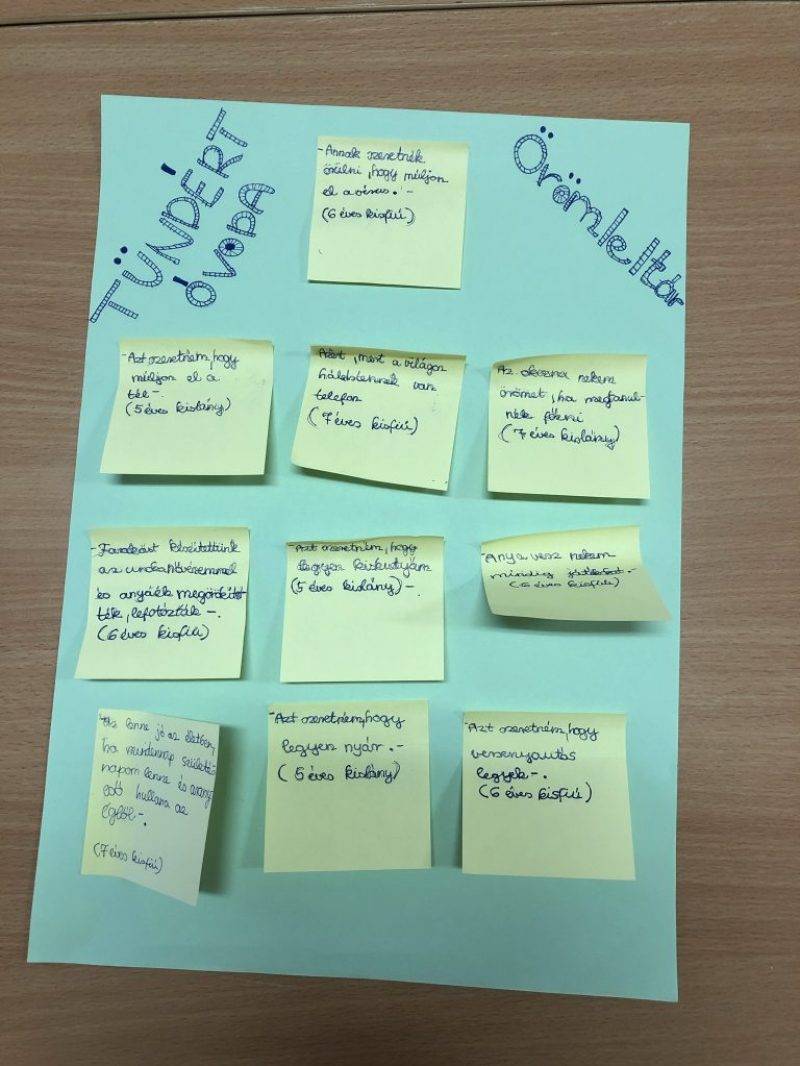 TÜNDÉRT
ÓVODA
Örömleltár
- Annak szeretnék
örülni, hogy múljon
el a vírus. -
(6 éves kisfiú)
- Azt szeretném, hogy
múljon el a
tél -.
(5 éves kislány)
Azért, mert a világon
mindenkinek van
telefon
(7 éves kisfiú)
Az okozna nekem
örömet, ha megtanul-
nék főzni
(7 éves kislány)
az unokanővéremmel
és anyáék megörökítet-
ték, lefotózták -.
(6 éves kisfiú)
- Azt szeretném, hogy
legyen kiskutyám
(5 éves kislány) -.
- Anya vesz nekem
mindig
(6 éves kisfiú)
- Az lenne jó az életben,
ha mindennap születés-
napom lenne és arany
eső hullana az
égből -.
(7 éves kisfiú)
- Azt szeretném, hogy
legyen nyár. -
(5 éves kislány)
- Azt szeretném, hogy
versenyautós
legyek -.
(6 éves kisfiú)